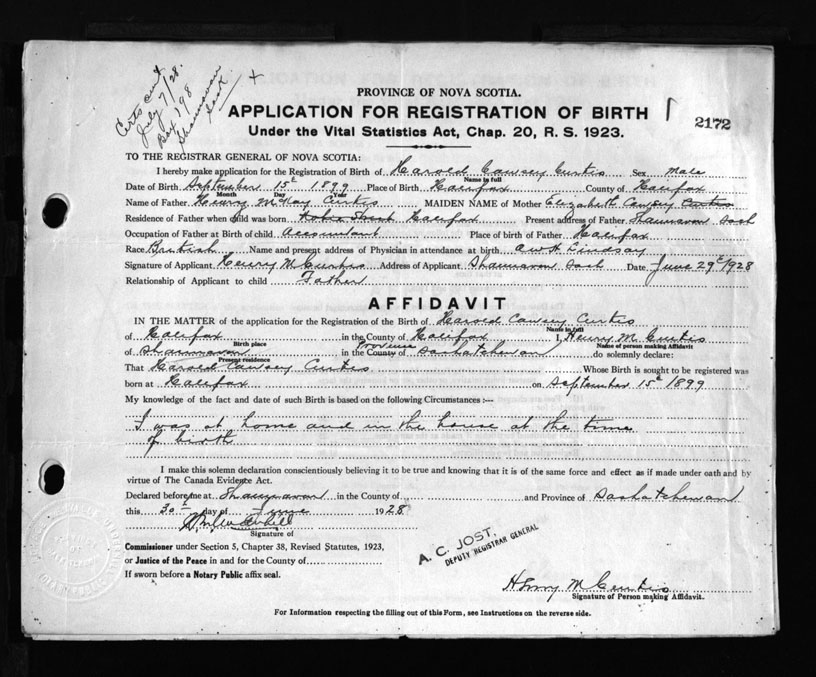 Certs sent
July 7/28.
Box 198
Shaunavon
Sask
+
PROVINCE OF NOVA SCOTIA.
APPLICATION FOR REGISTRATION OF BIRTH
2172
Under the Vital Statistics Act, Chap. 20, R. S. 1923.
TO THE REGISTRAR GENERAL OF NOVA SCOTIA:
I hereby make application for the Registration of Birth of Harold Cawsey Curtis Sex Male
Name in full
Date of Birth September 15th 1899 Place of Birth Halifax County of Halifax
Month Day Year
Name of Father Henry McKay Curtis MAIDEN NAME of Mother Elizabeth Cawsey Curtis
Residence of Father when child was born Street Halifax Present address of Father Shaunavon Sask
Occupation of Father at Birth of child Accountant Place of birth of Father Halifax
Race British Name and present address of Physician in attendance at birth Lindsay
Signature of Applicant Henry M Curtis Address of Applicant Shaunavon Sask Date June 29th 1928
Relationship of Applicant to child Father
AFFIDAVIT
IN THE MATTER of the application for the Registration of the Birth of Harold Cawsey Curtis
Name in full
of Halifax in the County of Halifax I, Henry M Curtis
Birth place Name of person making Affidavit
of Shaunavon in the County Province of Saskatchewan do solemnly declare:
Present residence
That Harold Cawsey Curtis Whose Birth is sought to be registered was
born at Halifax on September 15th 1899
My knowledge of the fact and date of such Birth is based on the following Circumstances :—
I was at home and in the house at the time
of birth
I make this solemn declaration conscientiously believing it to be true and knowing that it is of the same force and effect as if made under oath and by
virtue of The Canada Evidence Act.
Declared before me at Shaunavon in the County of and Province of Saskatchewan
this 30th day of June 1928
Signature of
Commissioner under Section 5, Chapter 38, Revised Statutes, 1923,
or Justice of the Peace in and for the County of
If sworn before a Notary Public affix seal.
A. C. JOST.
DEPUTY REGISTRAR GENERAL
Henry M Curtis
Signature of Person making Affidavit.
For Information respecting the filling out of this Form, see Instructions on the reverse side.